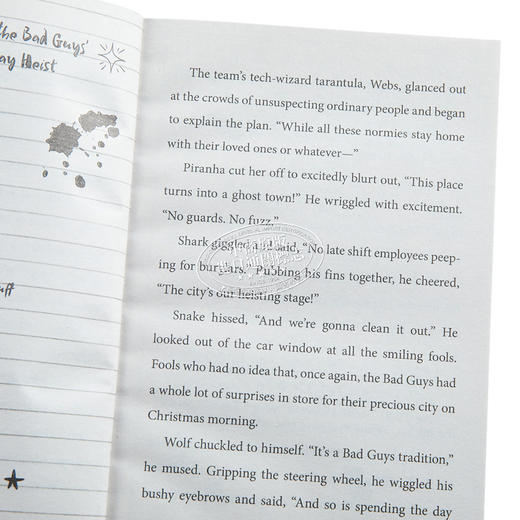 the Bad Guys'
ay Heist
uff
The team's tech-wizard tarantula, Webs, glanced out
at the crowds of unsuspecting ordinary people and began
to explain the plan. "While all these normies stay home
with their loved ones or whatever—"
Piranha cut her off to excitedly blurt out, "This place
turns into a ghost town!" He wriggled with excitement.
"No guards. No fuzz."
Shark giggled and said, "No late shift employees peep-
ing for burglars." Rubbing his fins together, he cheered,
"The city's our heisting stage!"
Snake hissed, "And we're gonna clean it out." He
looked out of the car window at all the smiling fools.
Fools who had no idea that, once again, the Bad Guys had
a whole lot of surprises in store for their precious city on
Christmas morning.
Wolf chuckled to himself. "It's a Bad Guys tradition,"
he mused. Gripping the steering wheel, he wiggled his
bushy eyebrows and said, "And so is spending the day